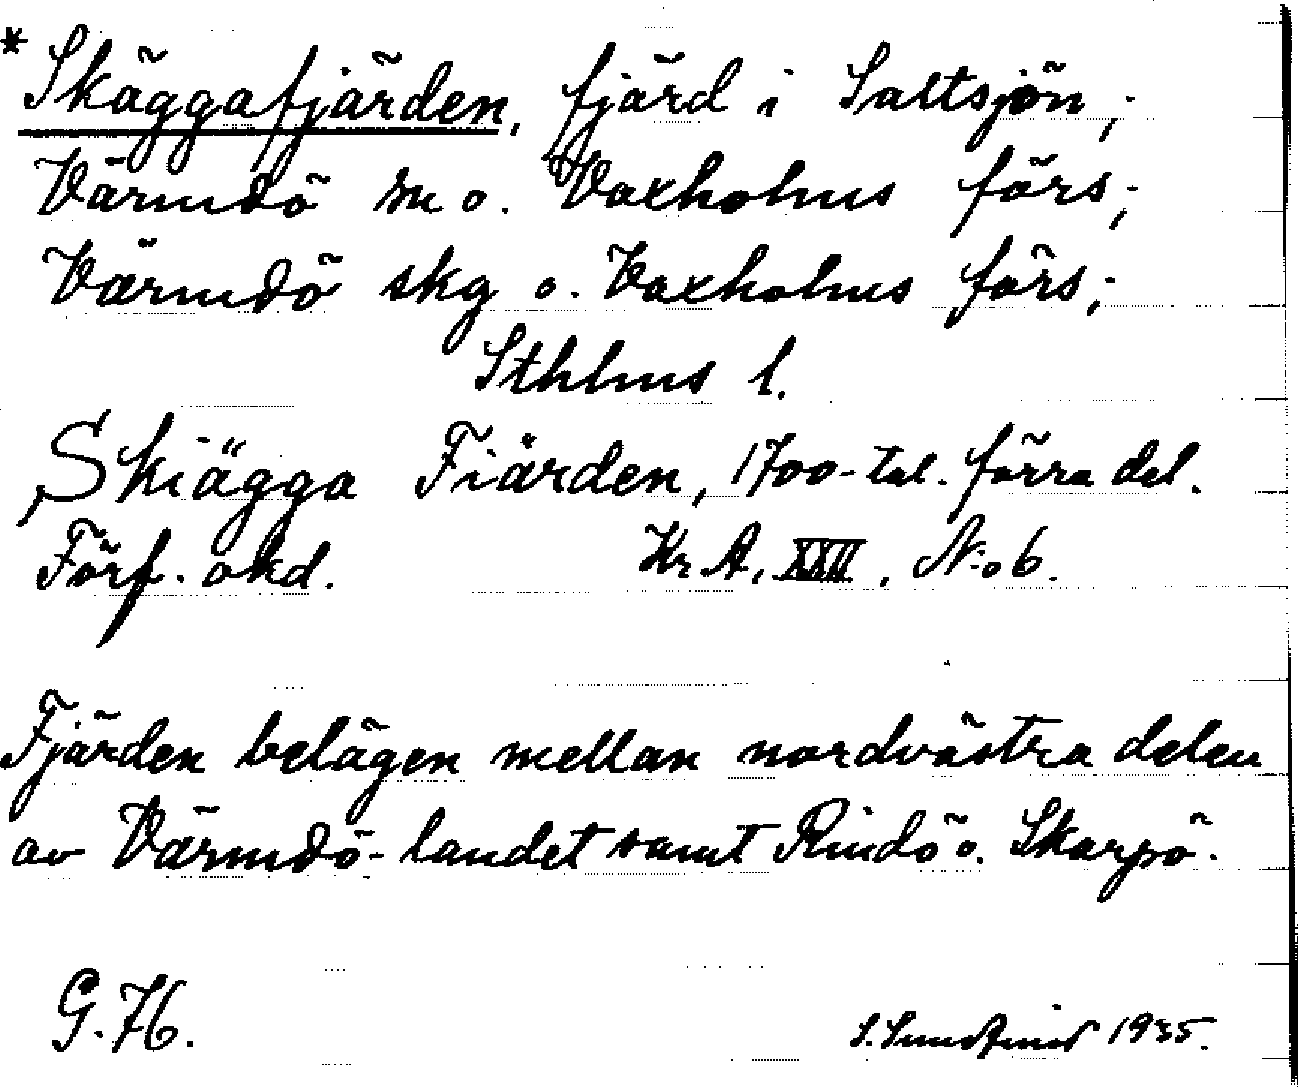 * Skäggafjärden, fjärd i Saltsjön,;
Värmdö sn o. Vaxholms förs,;
Värmdö skg o. Vaxholms förs,;
Sthlms l.
Skiägga Fiärden, 1700-tal. förra del.
Förf. okd. Kr. A, XXII, N:o 6.
Fjärden belägen mellan nordvästra delen
av Värmdö-landet samt Rindö o. Skarpö.
G. 76.
S. 1935.